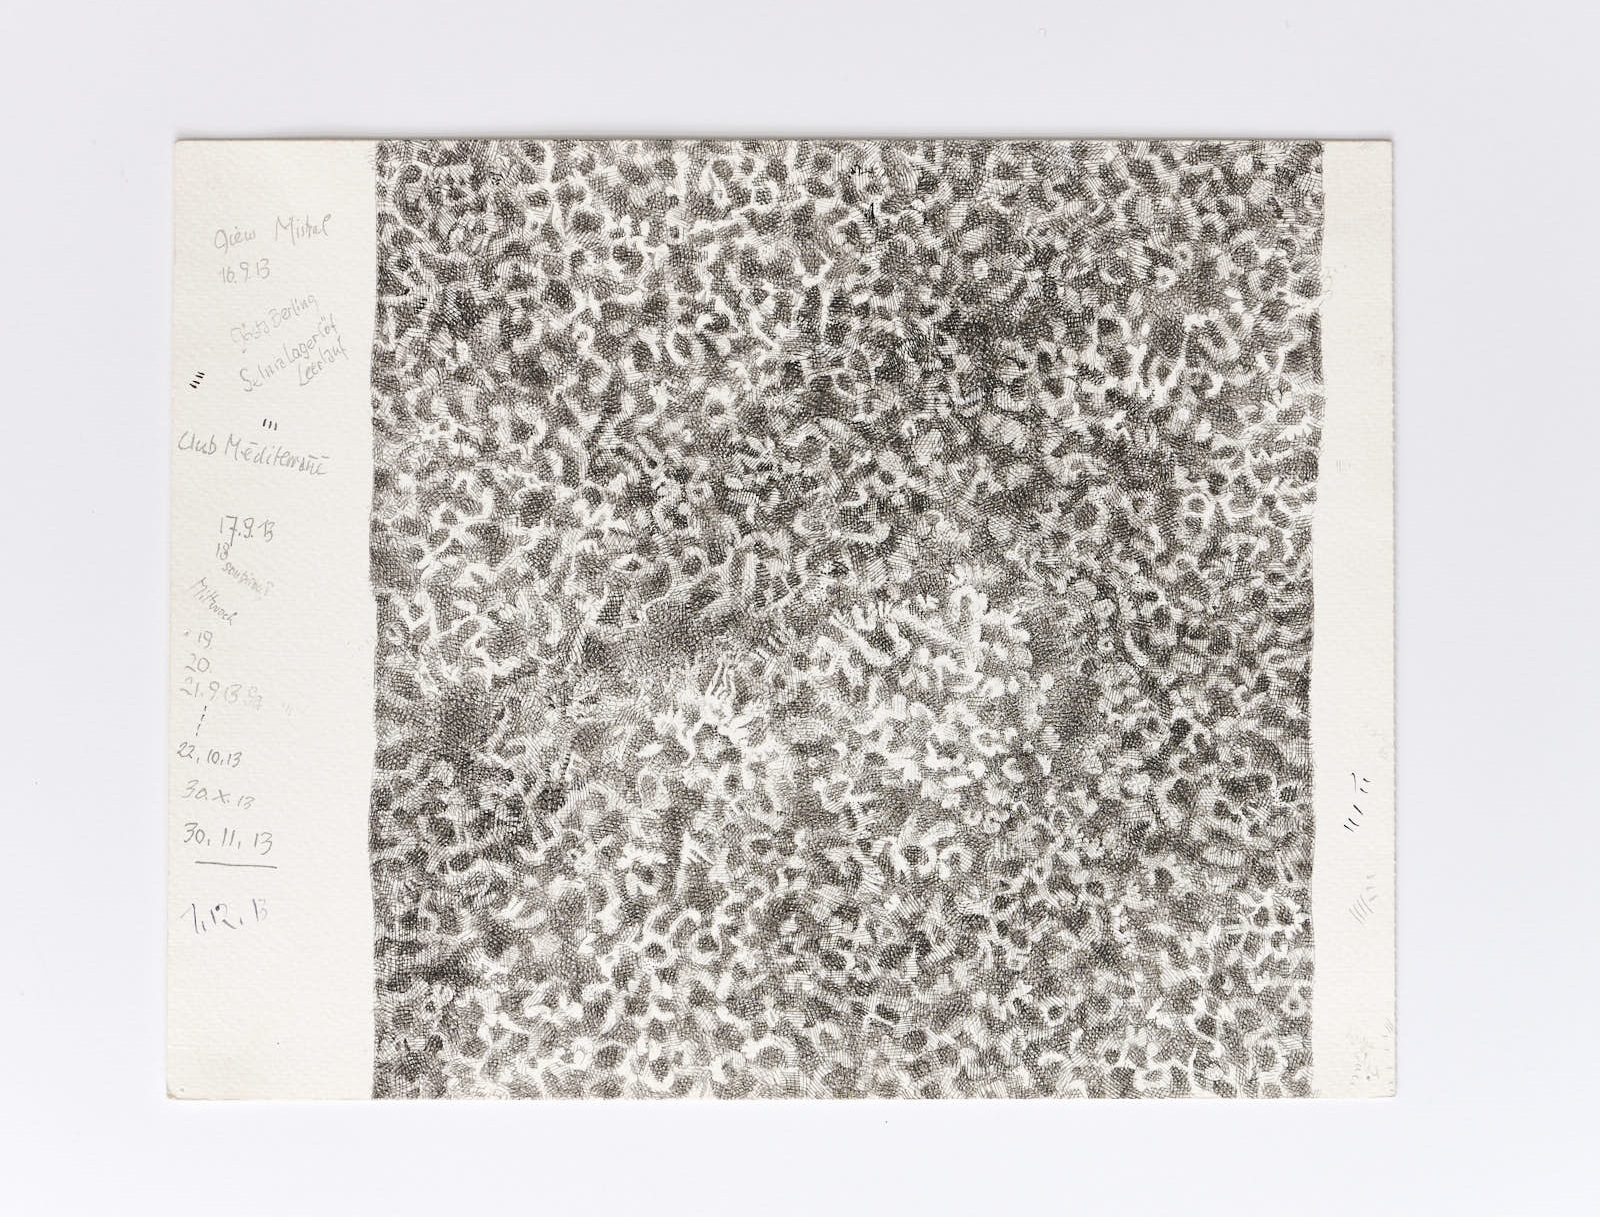 Mistral
16.9.13
Gösta Berling
Selma Lagerlöf
Leerlauf
Club Méditerrané
17.9.13
18
Mittwoch
19.
20.
21.9.13 Sa
22.10.13
30.X.13
30.11.13
1.12.13